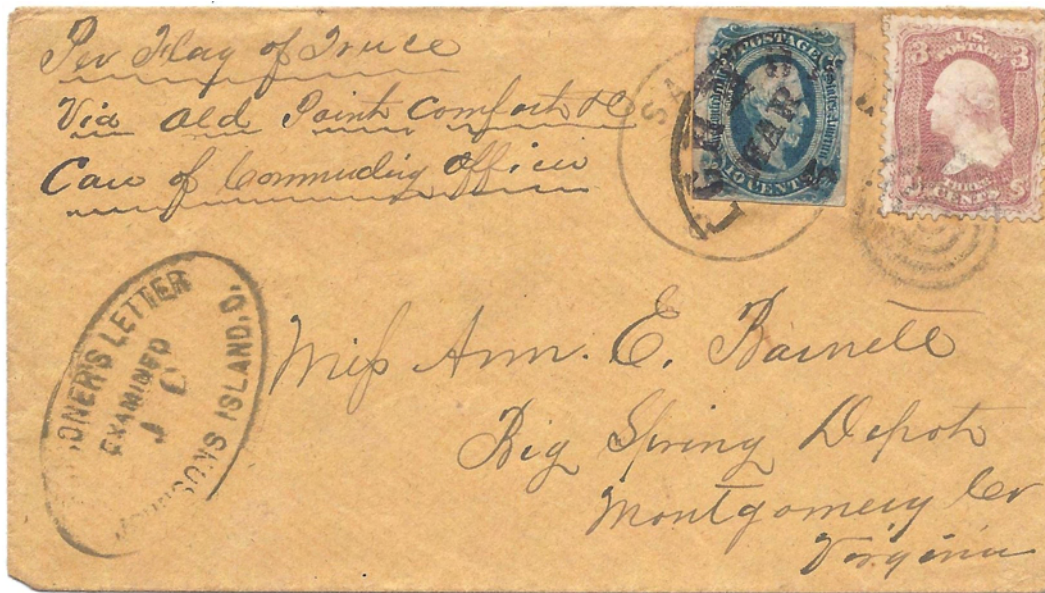 Per Flag of Truce
Via Old Point Comfort Va
Care of Commudig Officer
POSTAGE
MAR
10 CENTS
SA
U.S.
POSTAGE
3 3
CENTS
ONER'S LETTER
EXAMINED
J C
SONS ISLAND, O.
Miss Ann. E. Barnett
Big Spring Depot
Montgomery Co
Virginia